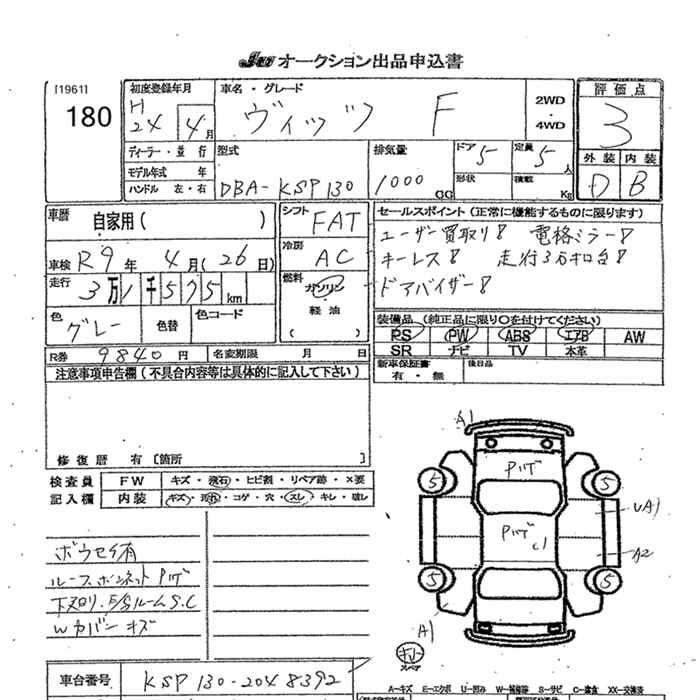 JU オークション出品申込書
[1961]
180
初度登録年月
H
24 4 月
車名・グレード
ヴィッツ F
2WD
・
4WD
評価点
3
外装 内装
D B
ディーラー・並行
モデル年式 年
ハンドル 左・右
型式
DBA-KSP130
排気量
1000
CC
ドア 5
定員 5 人
形状
積載 Kg
車歴 自家用( )
車検 R9年 4月(26日)
走行 3万1千575km
色 グレー
色替
色コード
R券 9840円
名変期限 月 日
シフト FAT
冷房 AC
燃料
ガソリン
軽油
( )
セールスポイント(正常に機能するものに限ります)
ユーザー買取り! 電格ミラー!
キーレス! 走行3万キロ台!
ドアバイザー!
装備品(純正品に限り〇を付けてください)
PS PW ABS エアB AW
SR ナビ TV 本革
新車保証書
有・無
後日品
注意事項申告欄(不具合内容等は具体的に記入して下さい)
修復歴 有〔箇所 〕
検査員
記入欄
FW キズ・飛石・ヒビ割・リペア跡・×要
内装 キズ・汚れ・コゲ・穴・スレ・キレ・破レ
ルーフ、ボンネット Pハゲ
Wカバーキズ
車台番号 KSP130-2048392
A1
Pハゲ
5
5
Pハゲ
C1
UA1
A2
5
5
A1
キリ
スペア
A-キズ E-エクボ U-凹み W-補修跡 S-サビ C-腐食 XX-交換済